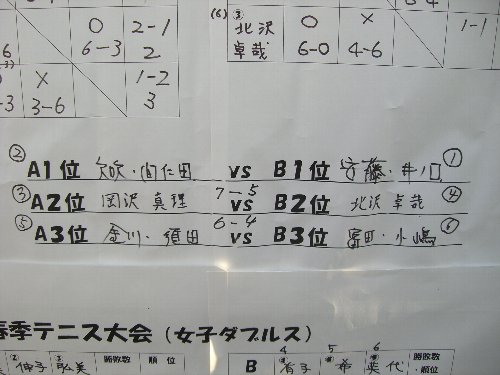 O 2-1
6 6-3 2
(6) ③ 北沢 卓哉 O 6-0 × 4-6 1-1
× 1-2
-3 3-6 3
② A1位 矢吹・間仁田 vs B1位 安藤・井ノ口 ①
③ A2位 岡沢 真理 7-5 vs B2位 北沢 卓哉 ④
⑤ A3位 金川・須田 6-4 vs B3位 富田・小嶋 ⑥
春季テニス大会(女子ダブルス)
伸子 弘美 勝敗数 順位 B 4 有子 5 希 6 英代 勝敗数・順位